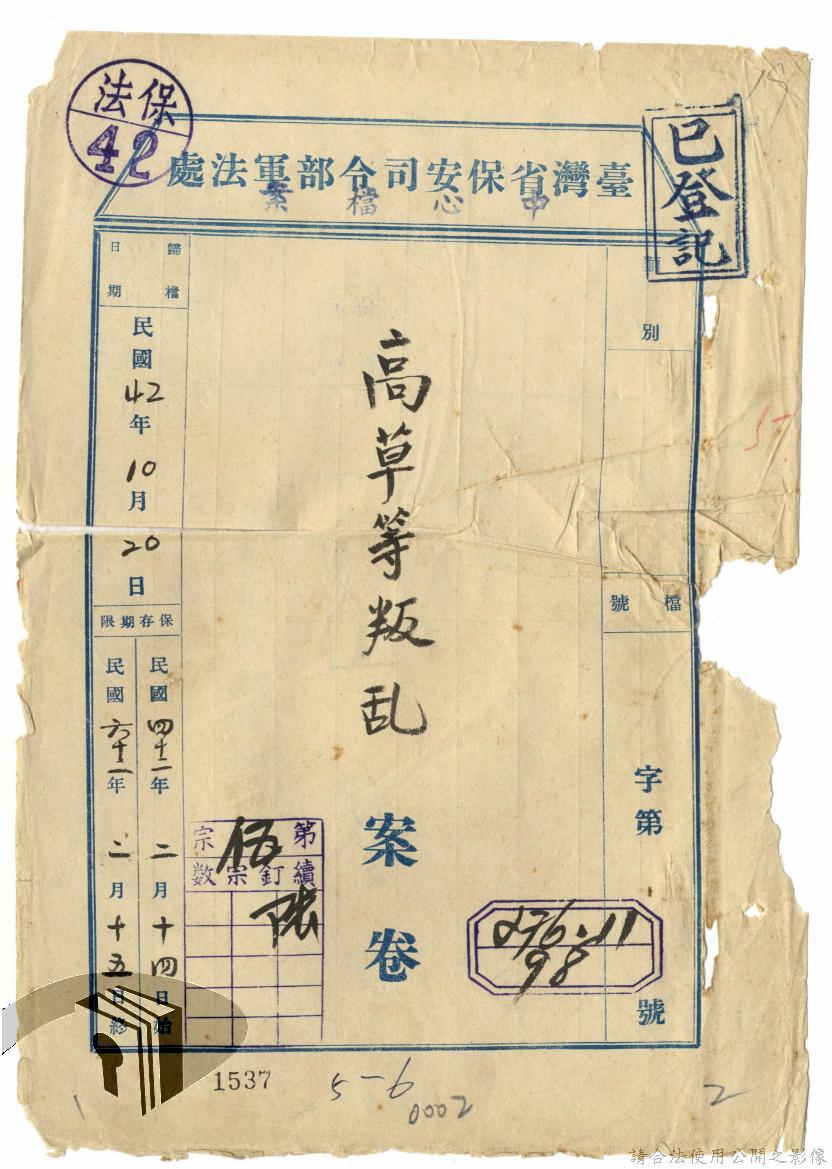 保法
42
已登記
臺灣省保安司令部軍法處
中心檔案
類別
檔號
字第
號
高草等叛乱
案卷
276.11
98
第伍宗
續訂宗數
陸
歸檔日期
民國42年10月20日
保存期限
民國四十二年二月十四日始
民國六十二年二月十五日終
1537
5-6
0002
2
請合法使用公開之影像